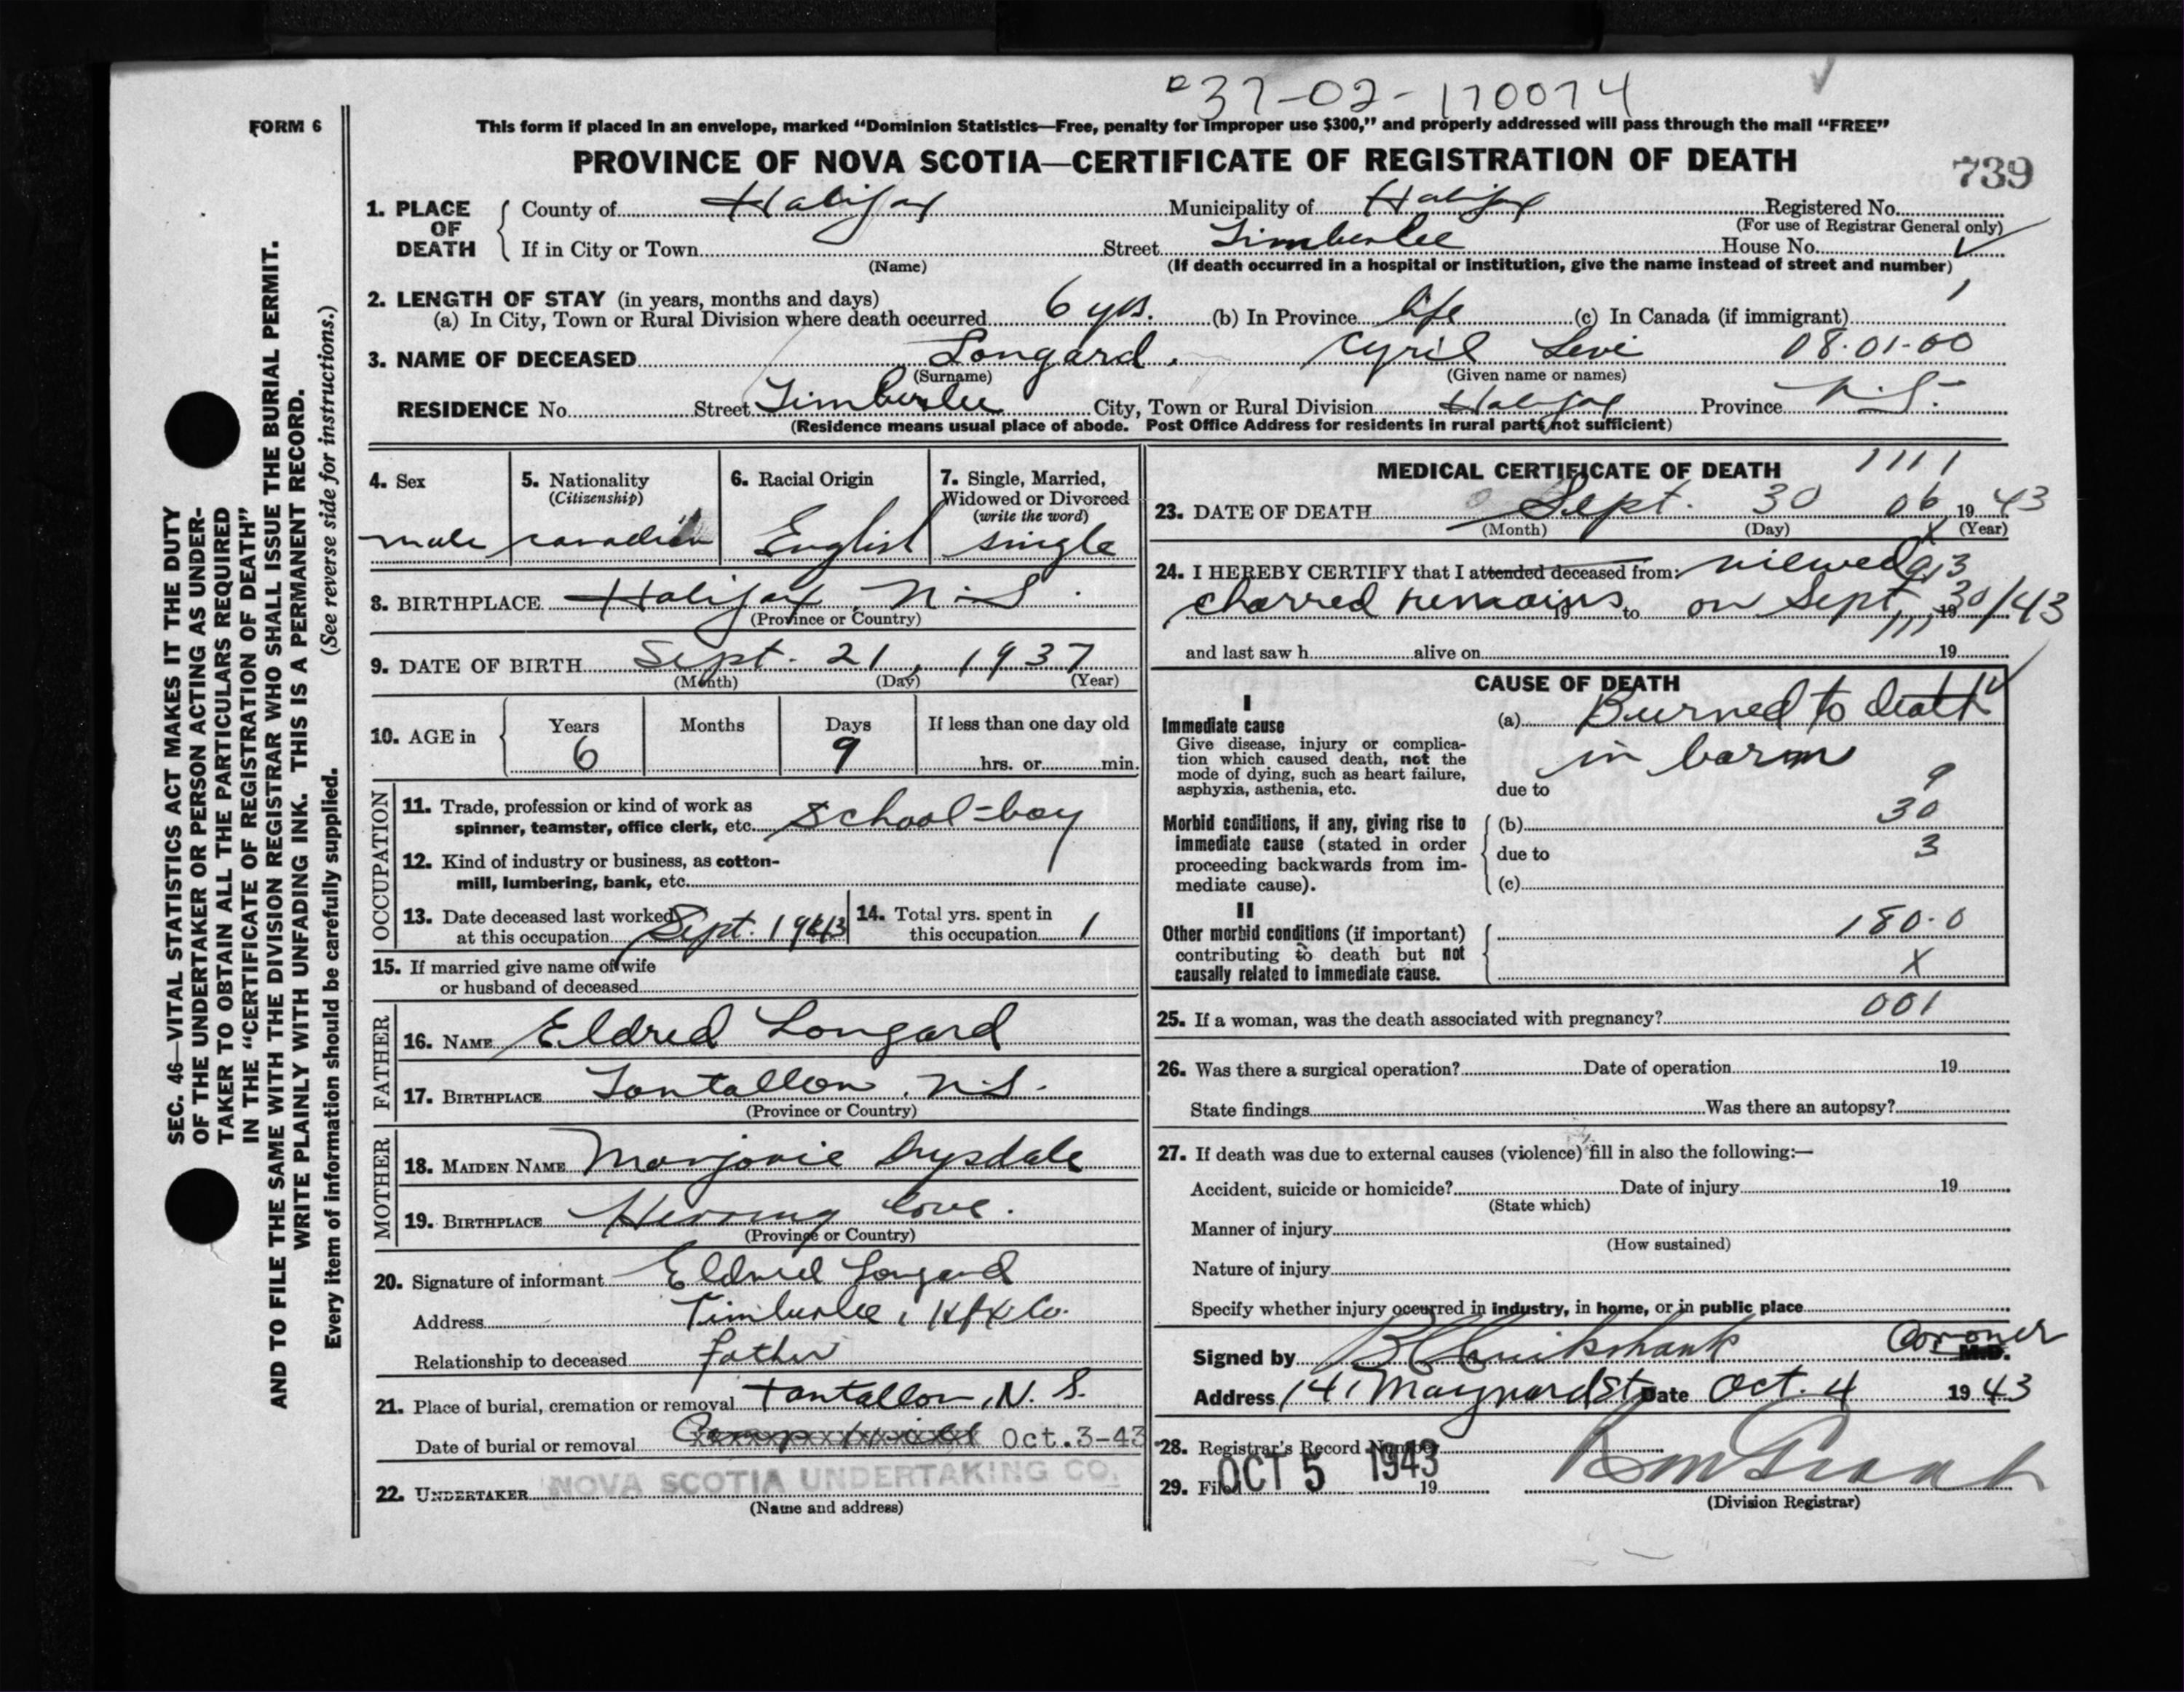 37-02-170074
FORM 6
This form if placed in an envelope, marked “Dominion Statistics—Free, penalty for improper use $300,” and properly addressed will pass through the mail “FREE”
PROVINCE OF NOVA SCOTIA—CERTIFICATE OF REGISTRATION OF DEATH
739
1. PLACE OF DEATH County of Halifax Municipality of Halifax Registered No.
(For use of Registrar General only)
If in City or Town Street Timberlee House No.
(Name) (If death occurred in a hospital or institution, give the name instead of street and number)
2. LENGTH OF STAY (in years, months and days)
(a) In City, Town or Rural Division where death occurred 6 yrs. (b) In Province life (c) In Canada (if immigrant)
3. NAME OF DECEASED Longard, Cyril Levi 08-01-00
(Surname) (Given name or names)
RESIDENCE No. Street Timberlee City, Town or Rural Division Halifax Province N.S.
(Residence means usual place of abode. Post Office Address for residents in rural parts not sufficient)
4. Sex
male
5. Nationality
(Citizenship)
canadian
6. Racial Origin
English
7. Single, Married,
Widowed or Divorced
(write the word)
single
8. BIRTHPLACE Halifax, N.S.
(Province or Country)
9. DATE OF BIRTH Sept. 21, 1937
(Month) (Day) (Year)
10. AGE in Years Months Days If less than one day old
6 9 hrs. or min.
OCCUPATION
11. Trade, profession or kind of work as
spinner, teamster, office clerk, etc. School-boy
12. Kind of industry or business, as cotton-
mill, lumbering, bank, etc.
13. Date deceased last worked
at this occupation Sept. 1943
14. Total yrs. spent in
this occupation 1
15. If married give name of wife
or husband of deceased
FATHER
16. NAME Eldred Longard
17. BIRTHPLACE Tantallon, N.S.
(Province or Country)
MOTHER
18. MAIDEN NAME Marjorie Drysdale
19. BIRTHPLACE Herring Cove.
(Province or Country)
20. Signature of informant Eldred Longard
Address Timberlee, Hfx Co.
Relationship to deceased father
21. Place of burial, cremation or removal Tantallon, N.S.
Date of burial or removal Oct.3-43
22. UNDERTAKER NOVA SCOTIA UNDERTAKING CO.
(Name and address)
MEDICAL CERTIFICATE OF DEATH 1111
23. DATE OF DEATH Sept. 30 06 1943
(Month) (Day) (Year)
24. I HEREBY CERTIFY that I attended deceased from: viewed
charred remains 19 to on Sept. 19 30/43
and last saw h alive on 19
CAUSE OF DEATH
I
Immediate cause
Give disease, injury or complica-
tion which caused death, not the
mode of dying, such as heart failure,
asphyxia, asthenia, etc.
(a) Burned to death
in barn
due to 9
Morbid conditions, if any, giving rise to
immediate cause (stated in order
proceeding backwards from im-
mediate cause).
(b) 30
due to 3
(c)
II
Other morbid conditions (if important)
contributing to death but not
causally related to immediate cause.
180-0
X
25. If a woman, was the death associated with pregnancy? 001
26. Was there a surgical operation? Date of operation 19
State findings Was there an autopsy?
27. If death was due to external causes (violence) fill in also the following:—
Accident, suicide or homicide? Date of injury 19
(State which)
Manner of injury
(How sustained)
Nature of injury
Specify whether injury occurred in industry, in home, or in public place
Signed by Cruikshank Coroner M.D.
Address 141 Maynard St Date Oct. 4 1943
28. Registrar's Record Number
29. Filed OCT 5 1943 19
(Division Registrar)
SEC. 46—VITAL STATISTICS ACT MAKES IT THE DUTY
OF THE UNDERTAKER OR PERSON ACTING AS UNDER-
TAKER TO OBTAIN ALL THE PARTICULARS REQUIRED
IN THE “CERTIFICATE OF REGISTRATION OF DEATH”
AND TO FILE THE SAME WITH THE DIVISION REGISTRAR WHO SHALL ISSUE THE BURIAL PERMIT.
WRITE PLAINLY WITH UNFADING INK. THIS IS A PERMANENT RECORD.
Every item of information should be carefully supplied. (See reverse side for instructions.)